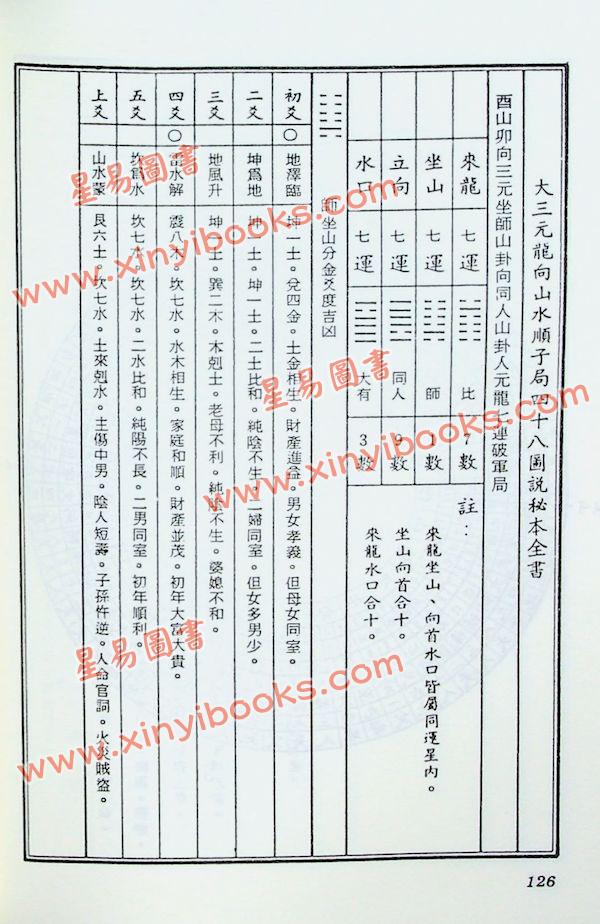 大三元龍向山水順子局四十八圖説秘本全書
酉山卯向三元坐師山卦向同人山卦人元龍七運破軍局
來龍 七運 比 7數
坐山 七運 師 1數
立向 七運 同人 9數
水口 七運 大有 3數
註：
來龍坐山、向首水口皆屬同運星內。
坐山向首合十。
來龍水口合十。
師坐山分金爻度吉凶
初爻 ○ 地澤臨 坤一土。兌四金。土金相生。財產進益。男女孝義。但母女同室。
二爻 坤為地 坤一土。坤一土。二土比和。純陰不生。二婦同室。但女多男少。
三爻 地風升 坤一土。巽二木。木剋土。老母不利。純陰不生。婆媳不和。
四爻 ○ 雷水解 震八木。坎七水。水木相生。家庭和順。財產並茂。初年大富大貴。
五爻 坎為水 坎七水。坎七水。二水比和。純陽不長。二男同室。初年順利。
上爻 山水蒙 艮六土。坎七水。土來剋水。主傷中男。陰人短壽。子孫忤逆。人命官詞。火災賊盜。
126
星易圖書
www.xinyibooks.com
星易圖書
www.xinyibooks.com
星易圖書
www.xinyibooks.com